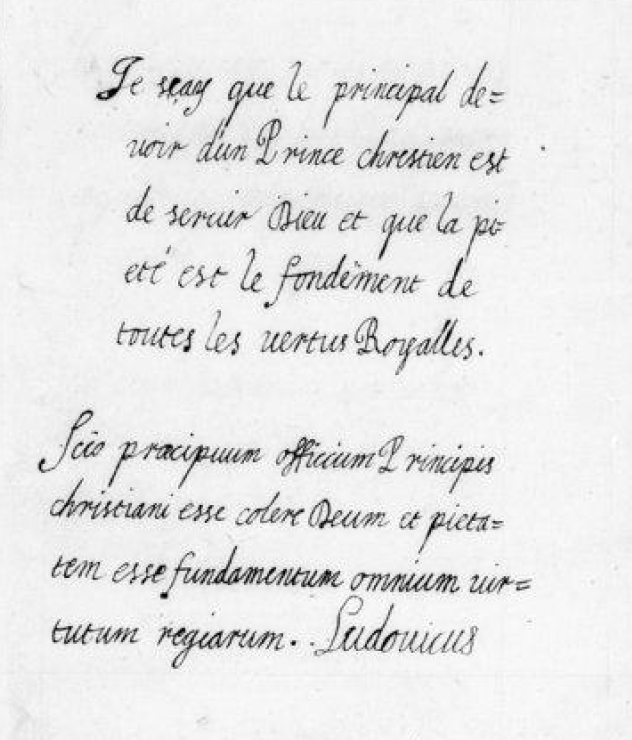 Je sçay que le principal de=
uoir d'un Prince chrestien est
de seruir Dieu et que la pi-
eté est le fondement de
toutes les uertus Royalles.
Scio præcipuum officium Principis
christiani esse colere Deum et pieta=
tem esse fundamentum omnium uir=
tutum regiarum. . Ludouicus